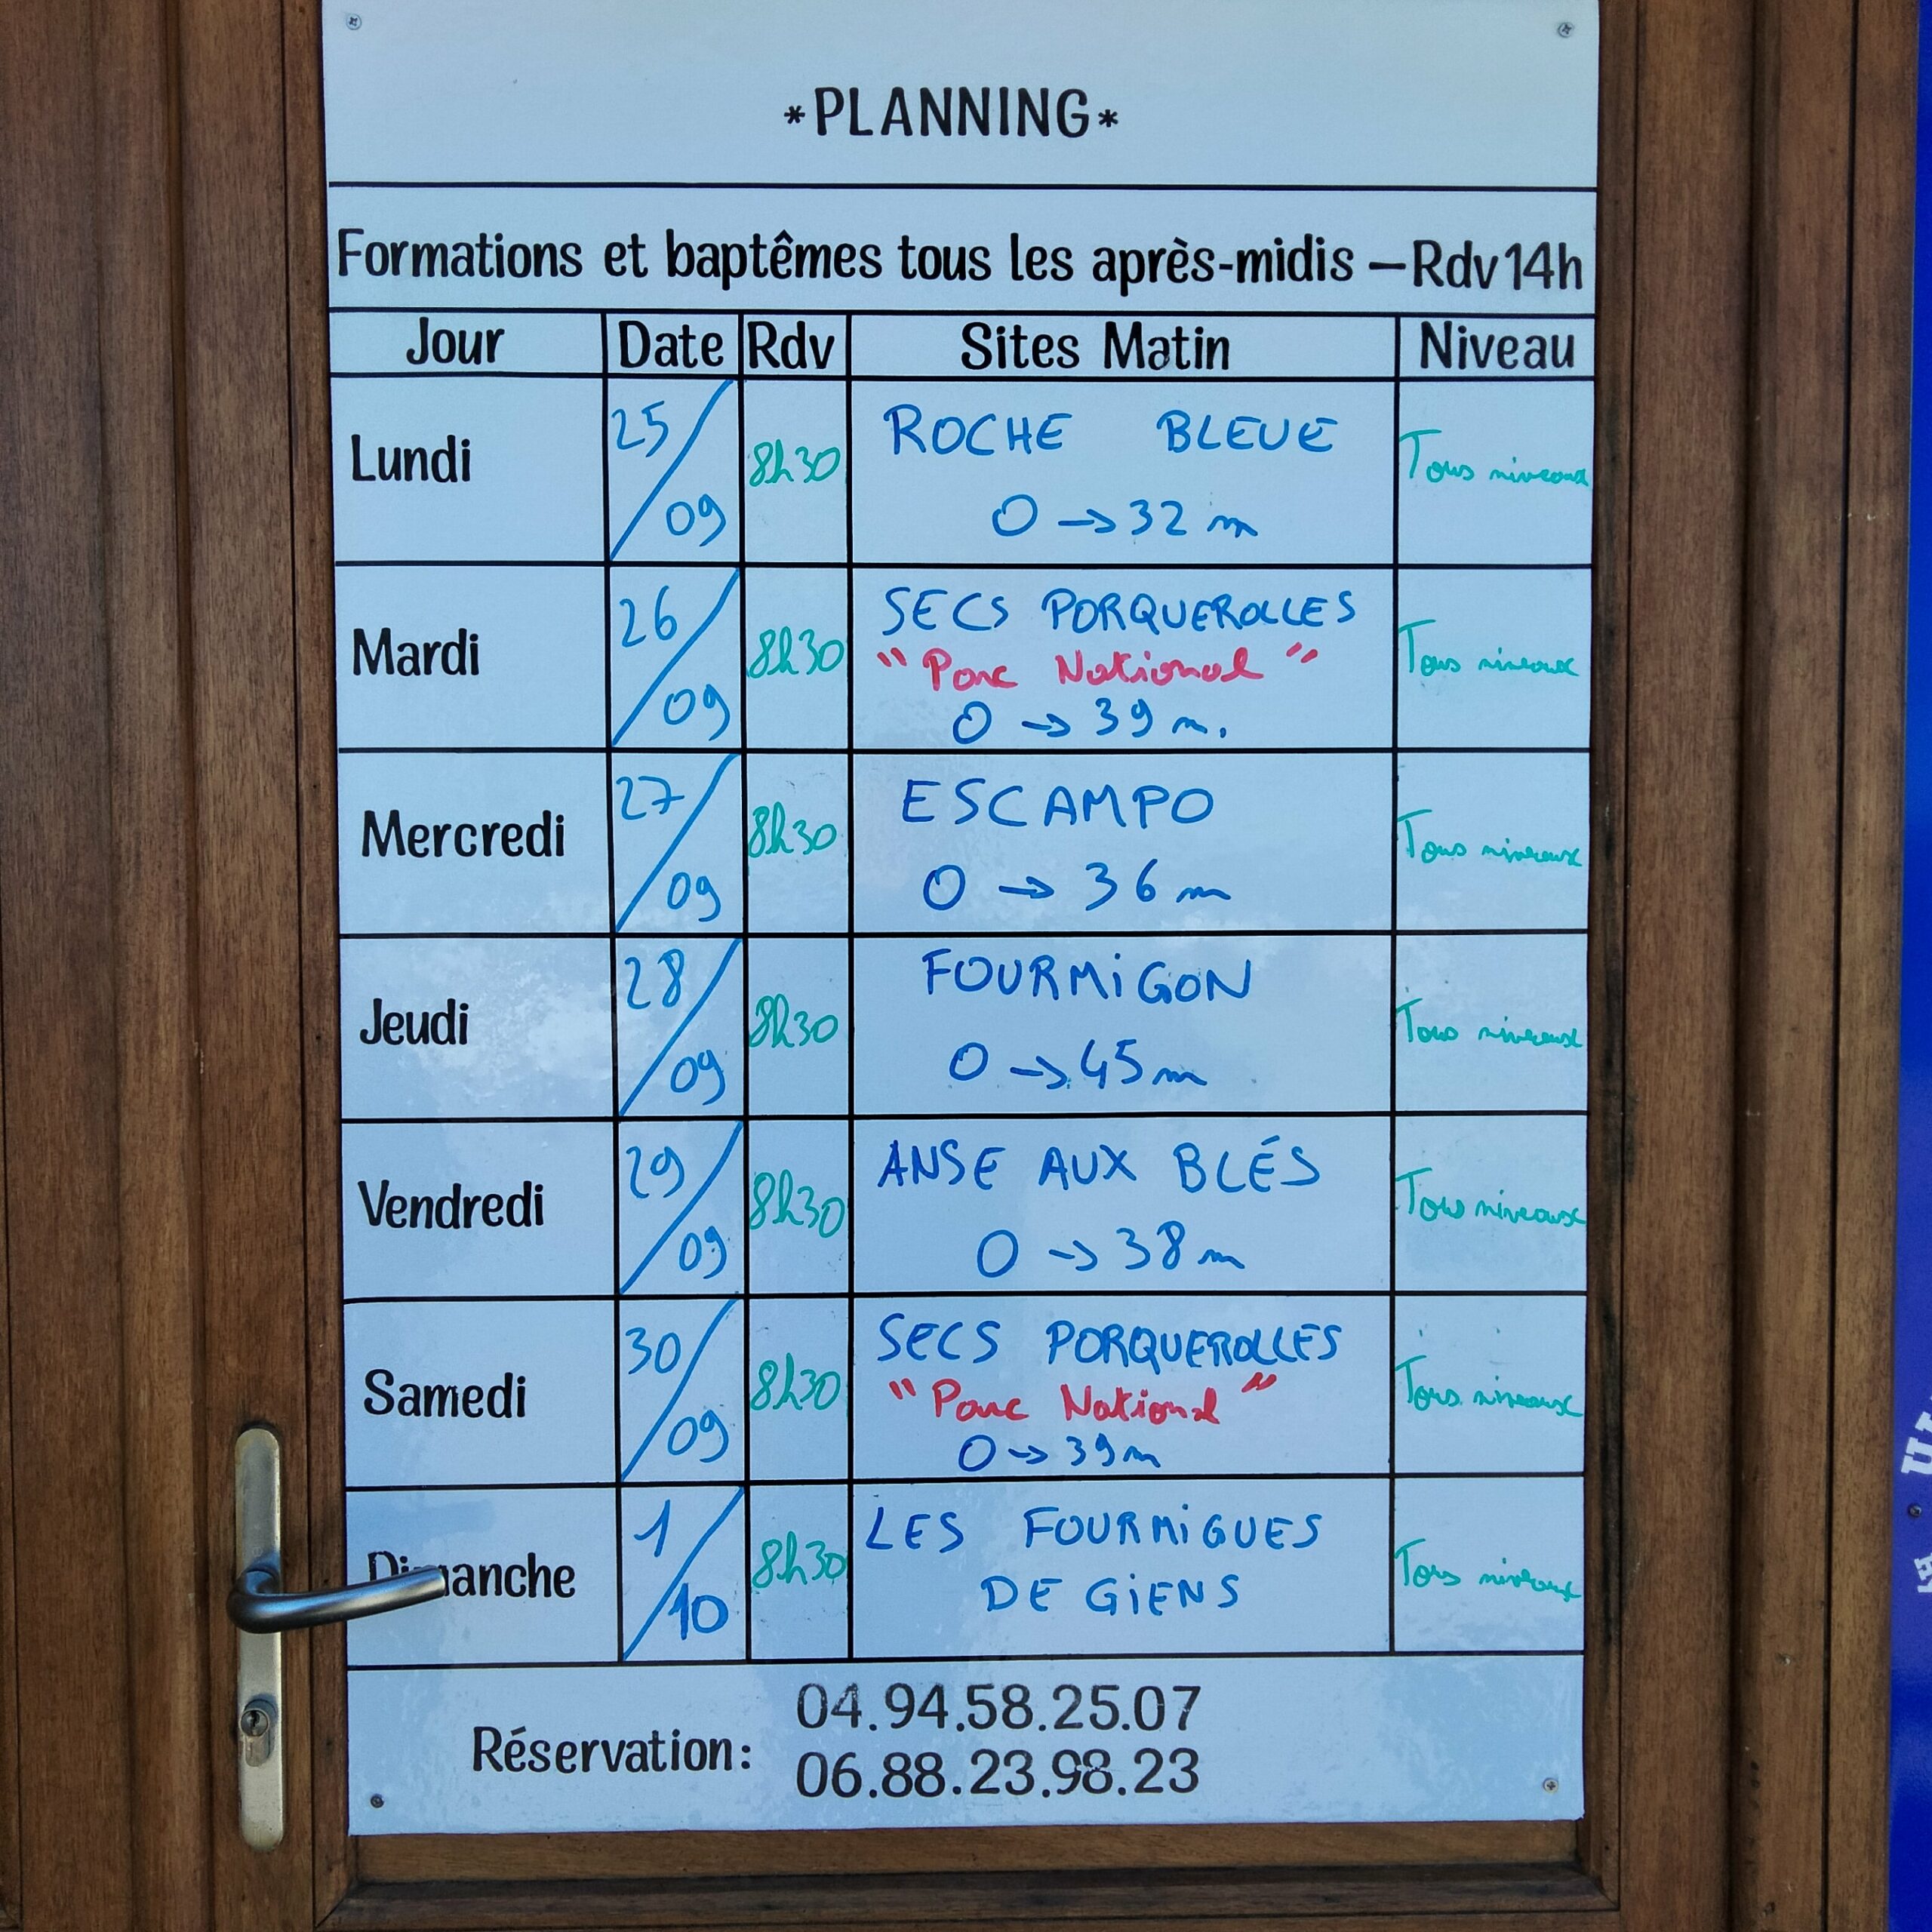 *PLANNING*
Formations et baptêmes tous les après-midis – Rdv 14h
Jour Date Rdv Sites Matin Niveau
Lundi 25/09 8h30 ROCHE BLEUE Tous niveaux
0 → 32 m
Mardi 26/09 8h30 SECS PORQUEROLLES Tous niveaux
"Parc National"
0 → 39 m.
Mercredi 27/09 8h30 ESCAMPO Tous niveaux
0 → 36 m
Jeudi 28/09 8h30 FOURMiGON Tous niveaux
0 → 45 m
Vendredi 29/09 8h30 ANSE AUX BLÉS Tous niveaux
0 → 38 m
Samedi 30/09 8h30 SECS PORQUEROLLES Tous niveaux
"Parc National"
0 → 39 m
Dimanche 1/10 8h30 LES FOURMiGUES Tous niveaux
DE GiENS
Réservation: 04.94.58.25.07
06.88.23.98.23